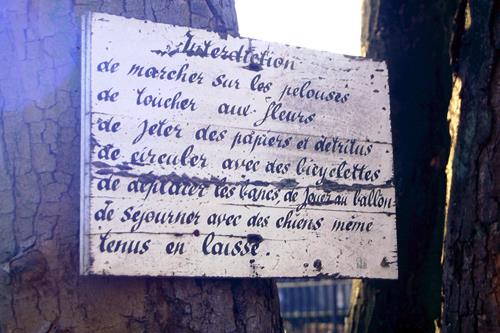 Interdiction
de marcher sur les pelouses
de toucher aux fleurs
de jeter des papiers et détritus
de circuler avec des bicyclettes
de déplacer les bancs de jouer au ballon
de séjourner avec des chiens même
tenus en laisse.